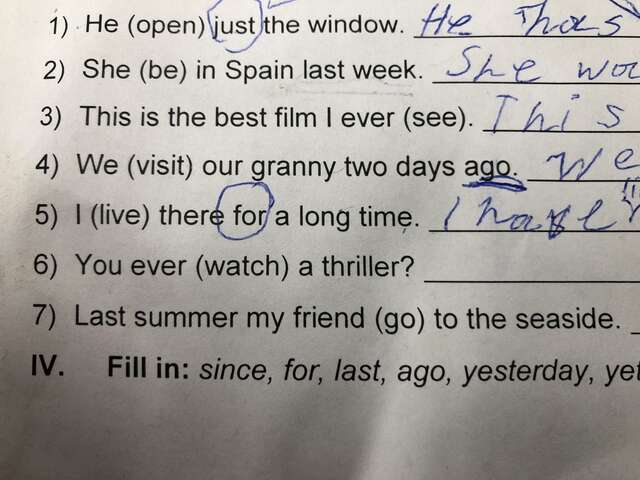 1) He (open) just the window. He has
2) She (be) in Spain last week. She
3) This is the best film I ever (see). This
4) We (visit) our granny two days ago. We
5) I (live) there for a long time. I have
6) You ever (watch) a thriller?
7) Last summer my friend (go) to the seaside.
IV. Fill in: since, for, last, ago, yesterday, yet